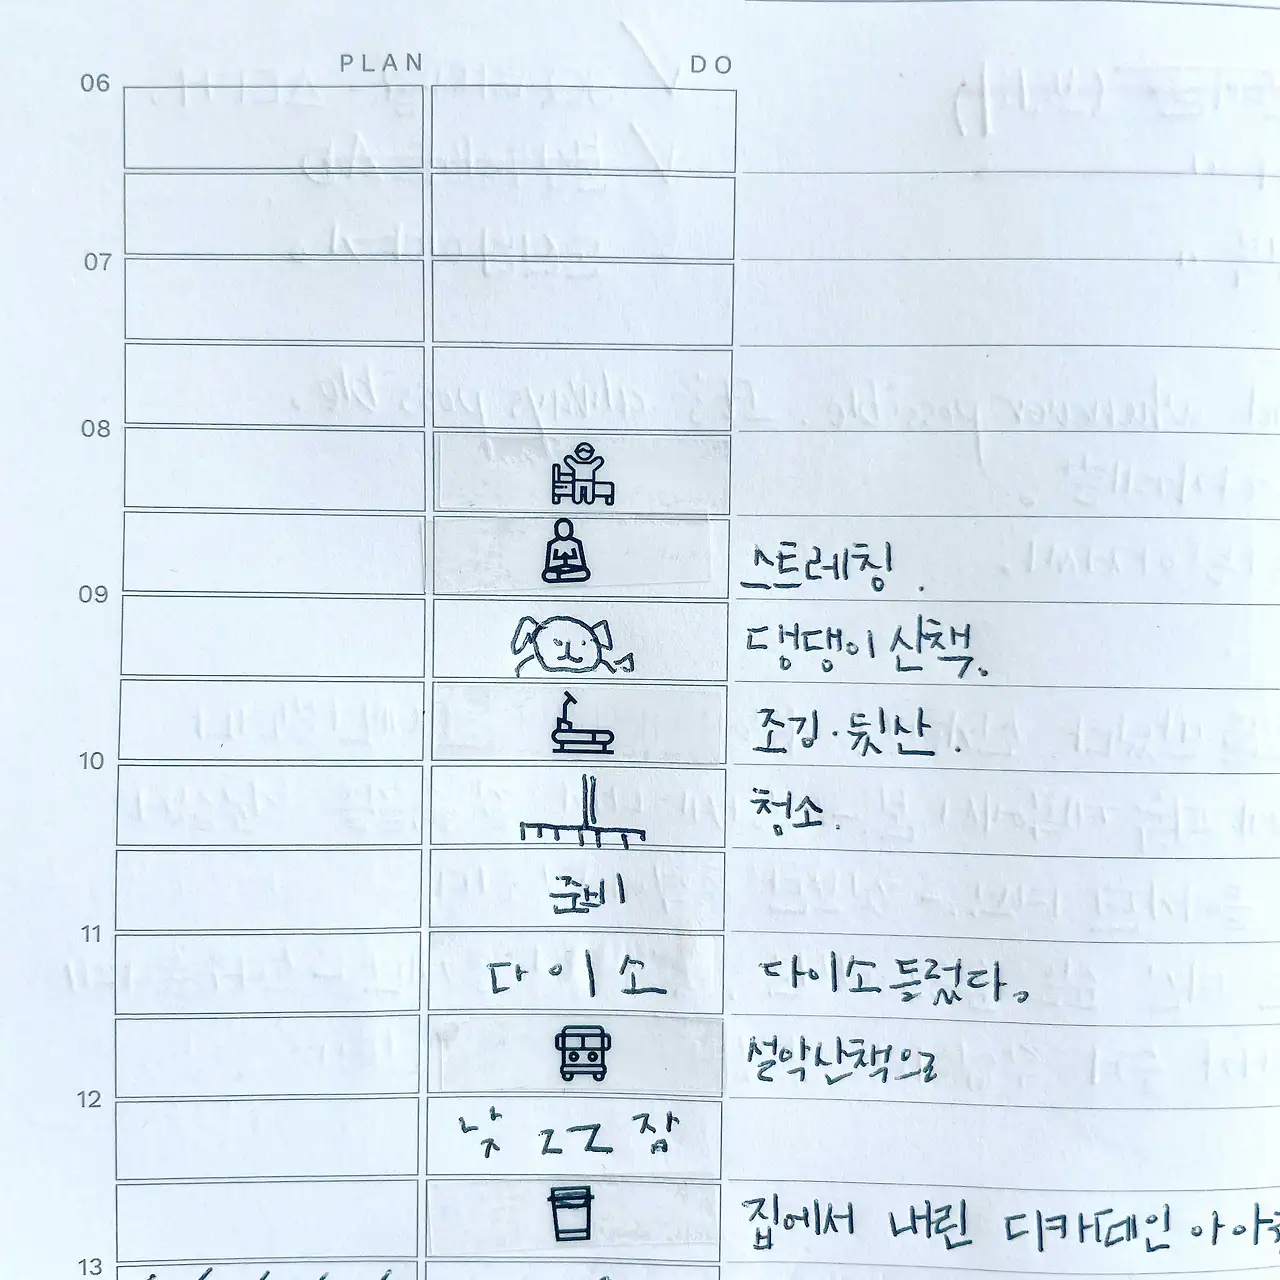 PLAN DO
06
07
08
스트레칭.
09
댕댕이 산책.
조깅·뒷산.
10
청소.
준비
11
다이소 다이소 들렀다.
설악산책으로
12
낮 zz 잠
집에서 내린 디카페인 아아
13